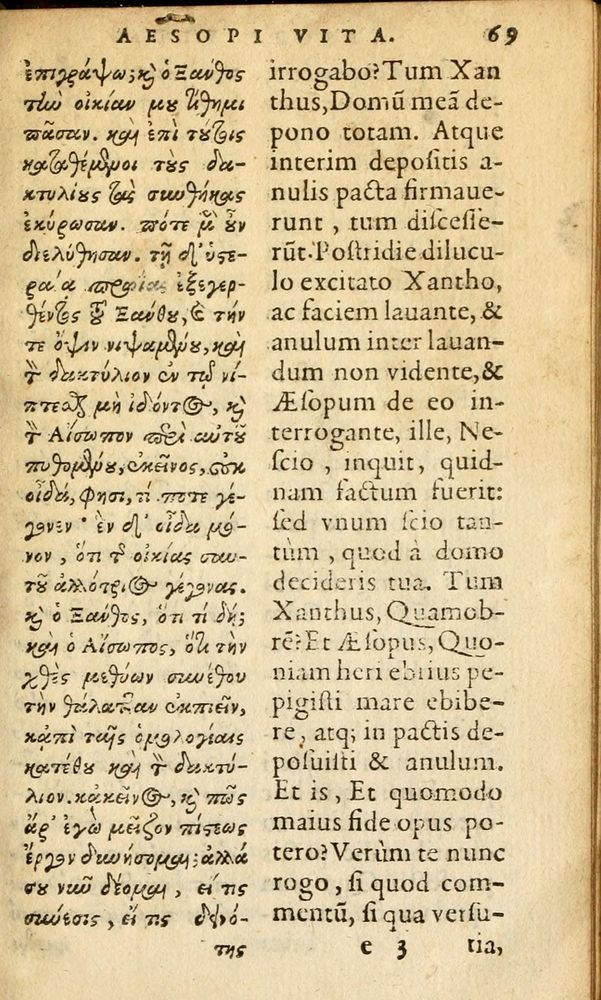 AESOPI VITA. 69
ἐπιγράψω; καὶ ὁ Ξάνθος
τὴν οἰκίαν μου τίθημι
πᾶσαν. καὶ ἐπὶ τούτοις
καταθέμενοι τοὺς δα-
κτυλίους τὰς συνθήκας
ἐκύρωσαν. πότε μὲν οὖν
διελύθησαν. τῇ δ' ὑστε-
ραίᾳ πρωίας ἐξεγερ-
θέντος τοῦ Ξάνθου, καὶ τήν
τε ὄψιν νιψαμένου, καὶ
τὸν δακτύλιον ἐν τῷ νί-
πτεσθαι μὴ ἰδόντος, καὶ
τὸν Αἴσωπον περὶ αὐτοῦ
πυθομένου, ἐκεῖνος, οὐκ
οἶδα, φησι, τί ποτε γέ-
γονεν· ἓν δ' οἶδα μό-
νον, ὅτι τῆς οἰκίας σαυ-
τοῦ ἀλλότριος γέγονας.
καὶ ὁ Ξάνθος, ὅτι τί δή;
καὶ ὁ Αἴσωπος, ὅτι τὴν
χθὲς μεθύων συνέθου
τὴν θάλατταν ἐκπιεῖν,
κἀπὶ ταῖς ὁμολογίαις
κατέθου καὶ τὸν δακτύ-
λιον. κἀκεῖνος, καὶ πῶς
ἆρ' ἐγὼ μεῖζον πίστεως
ἔργον δυνήσομαι; ἀλλά
σου νῦν δέομαι, εἴ τις
σύνεσις, εἴ τις δεινό-
της
irrogabo? Tum Xan
thus, Domū meā de-
pono totam. Atque
interim depoſitis a-
nulis pacta firmaue-
runt, tum diſceſſe-
rūt. Poſtridie dilucu-
lo excitato Xantho,
ac faciem lauante, &
anulum inter lauan-
dum non vidente, &
Æſopum de eo in-
terrogante, ille, Ne-
ſcio, inquit, quid-
nam factum fuerit:
ſed vnum ſcio tan-
tùm, quod à domo
decideris tua. Tum
Xanthus, Quamob-
rē? Et Æſopus, Quo-
niam heri ebrius pe-
pigiſti mare ebibe-
re, atq; in pactis de-
poſuiſti & anulum.
Et is, Et quomodo
maius fide opus po-
tero? Verùm te nunc
rogo, ſi quod com-
mentū, ſi qua verſu-
e 3 tia,